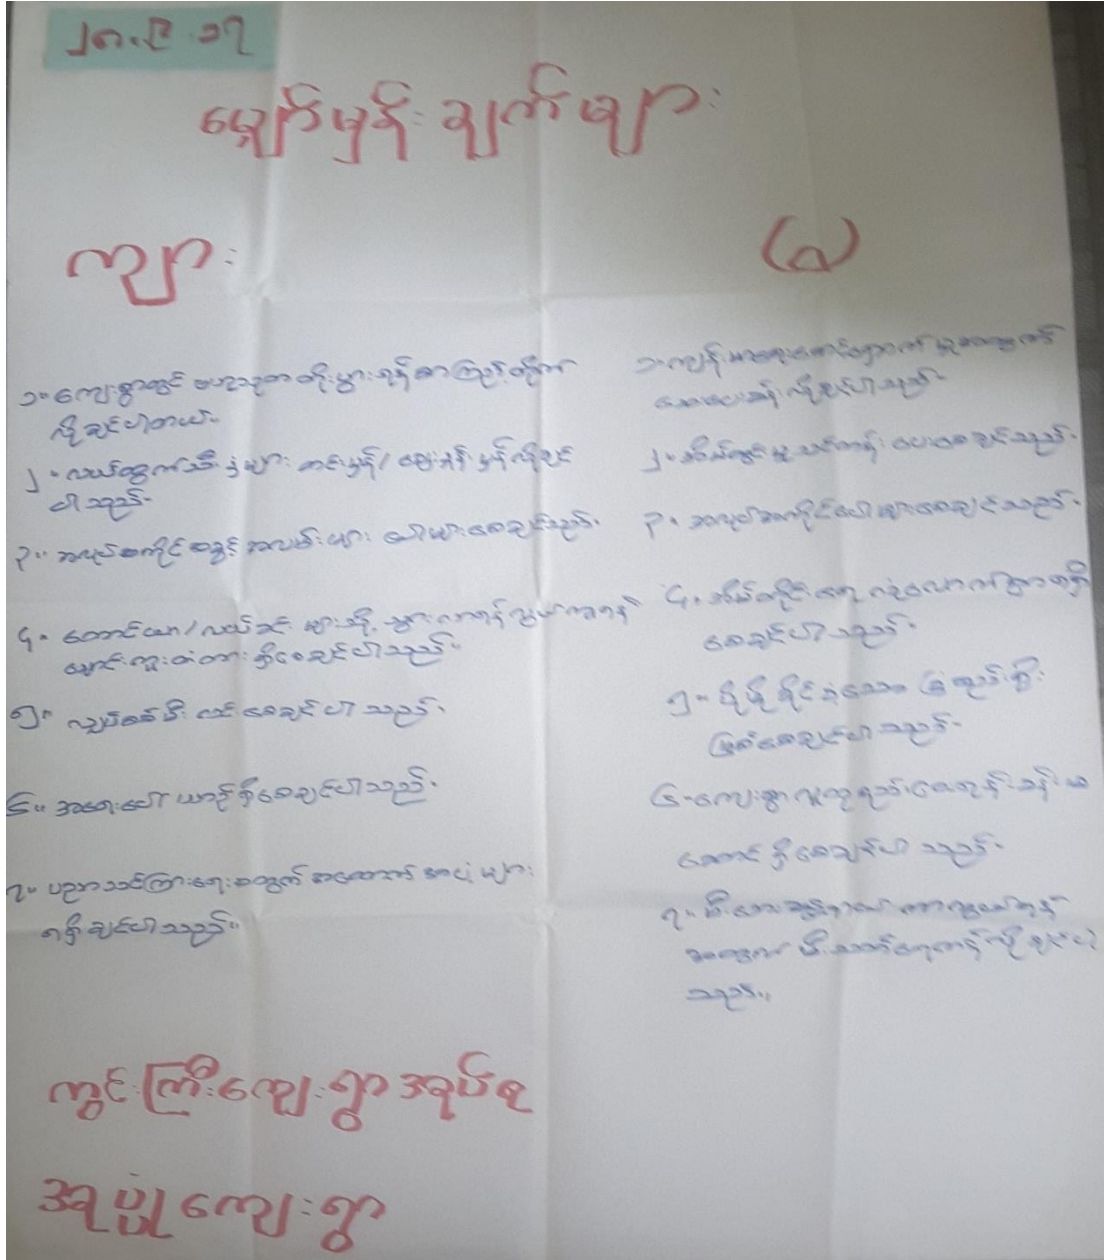 ၂၈.၂.၁၇
မျှော်မှန်းချက်များ
ကျား
(မ)
၁။ ကျေးရွာတွင် ဗဟုသုတ တိုးပွားရန် စာကြည့်တိုက်
လိုချင်ပါတယ်။
၂။ လယ်ထွက်သီးနှံများ တင်းမှန် / ဈေးမှန် မှန်လိုချင်
ပါသည်။
၃။ အလုပ်အကိုင် အခွင့်အလမ်းများ ပေါများစေချင်သည်။
၄။ တောင်ယာ / လယ်ခင်းများသို့ သွားလာရန် လွယ်ကူရန်
ချောင်းကူးတံတား ရှိစေချင်ပါသည်။
၅။ လျှပ်စစ်မီး လင်းစေချင်ပါသည်။
၆။ အရေးပေါ် ယာဉ်ရှိစေချင်ပါသည်။
၇။ ပညာသင်ကြားရေးအတွက် အထောက်အပံ့များ
ရရှိချင်ပါသည်။
၁။ ကျန်းမာရေးစောင့်ရှောက်မှုအတွက်
ဆေးပေးခန်း လိုချင်ပါသည်။
၂။ အိမ်တွင်းမှုသင်တန်း ပေးစေချင်သည်။
၃။ အလုပ်အကိုင်ပေါများစေချင်သည်။
၄။ အိမ်တိုင်း ရေ လုံလောက်စွာရရှိ
စေချင်ပါသည်။
၅။ မိမိပိုင်နှံသော ခြံစည်းရိုး
ဖြစ်စေချင်ပါသည်။
၆။ ကျေးရွာလူထုစည်းဝေးရန် ခန်းမ
ဆောင် ရှိစေချင်ပါသည်။
၇။ မီးဘေးအန္တရာယ် ကာကွယ်ရန်
အတွက် မီးသတ်ရေကန် လိုချင်ပါ
သည်။
ကွင်းကြီးကျေးရွာအုပ်စု
ကျေးရွာ